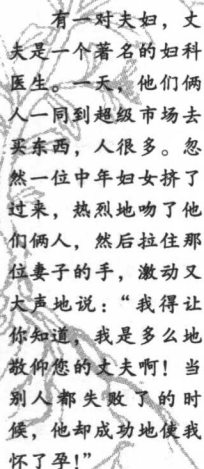 有一对夫妇，丈
夫是一个著名的妇科
医生。一天，他们俩
人一同到超级市场去
买东西，人很多。忽
然一位中年妇女挤了
过来，热烈地吻了他
们俩人，然后拉住那
位妻子的手，激动又
大声地说：“我得让
你知道，我是多么地
敬仰您的丈夫啊！当
别人都失败了的时
候，他却成功地使我
怀了孕！”